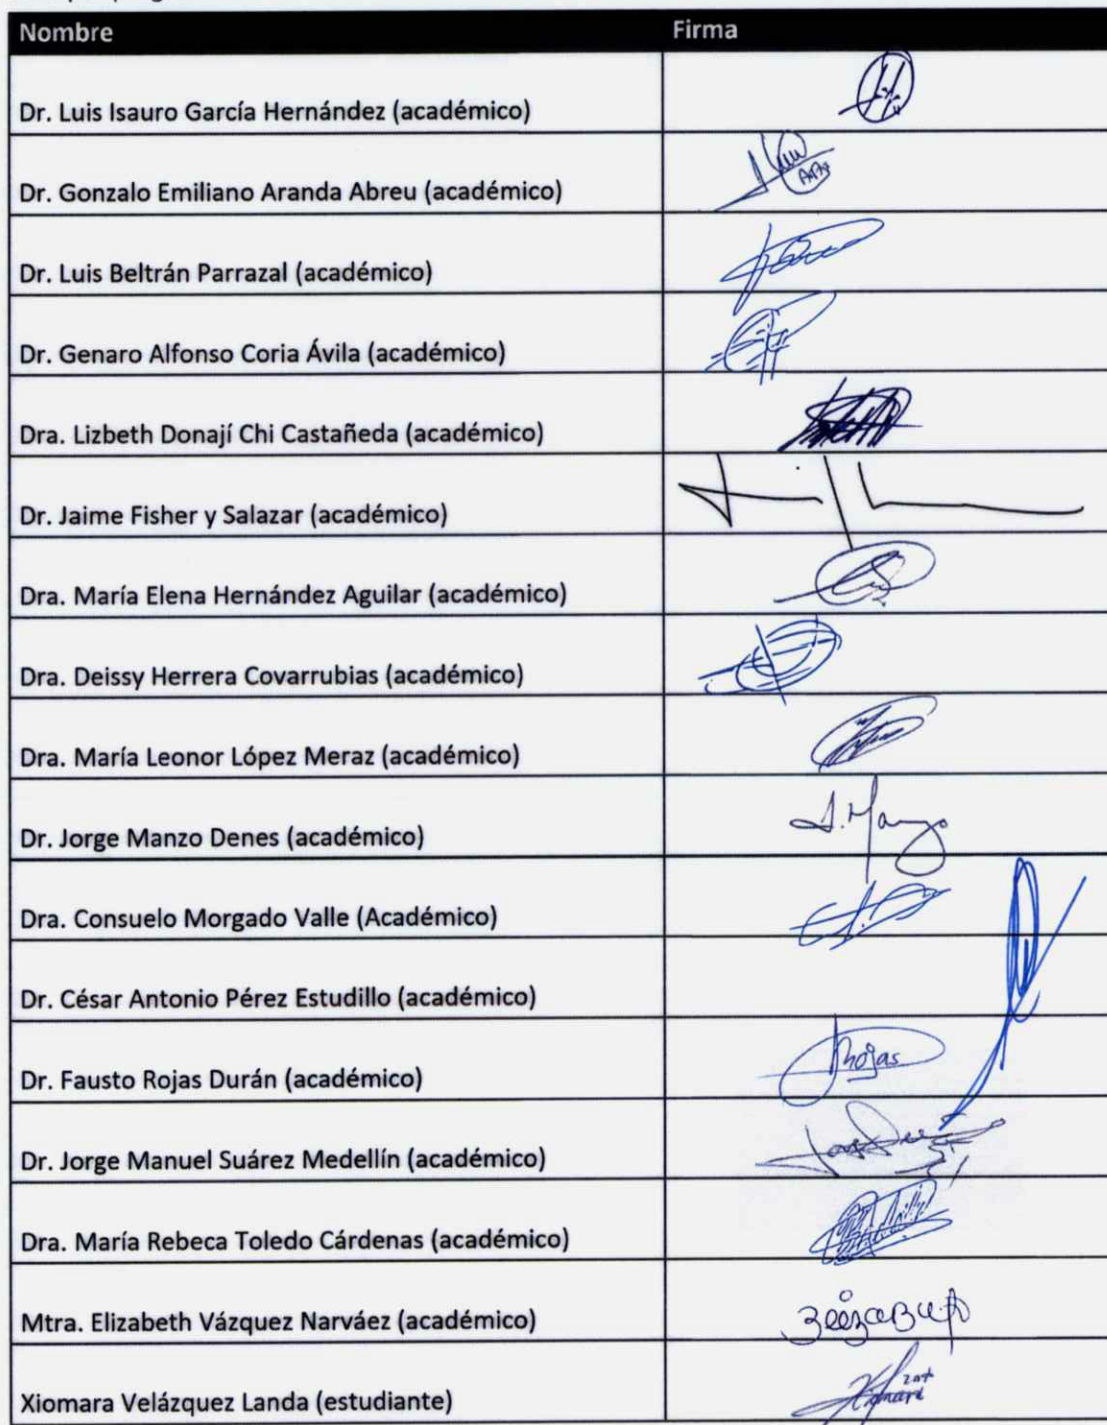 Nombre Firma
Dr. Luis Isauro García Hernández (académico)
Dr. Gonzalo Emiliano Aranda Abreu (académico)
Dr. Luis Beltrán Parrazal (académico)
Dr. Genaro Alfonso Coria Ávila (académico)
Dra. Lizbeth Donají Chi Castañeda (académico)
Dr. Jaime Fisher y Salazar (académico)
Dra. María Elena Hernández Aguilar (académico)
Dra. Deissy Herrera Covarrubias (académico)
Dra. María Leonor López Meraz (académico)
Dr. Jorge Manzo Denes (académico) J. Manzo
Dra. Consuelo Morgado Valle (Académico)
Dr. César Antonio Pérez Estudillo (académico)
Dr. Fausto Rojas Durán (académico) Rojas
Dr. Jorge Manuel Suárez Medellín (académico)
Dra. María Rebeca Toledo Cárdenas (académico)
Mtra. Elizabeth Vázquez Narváez (académico)
Xiomara Velázquez Landa (estudiante)